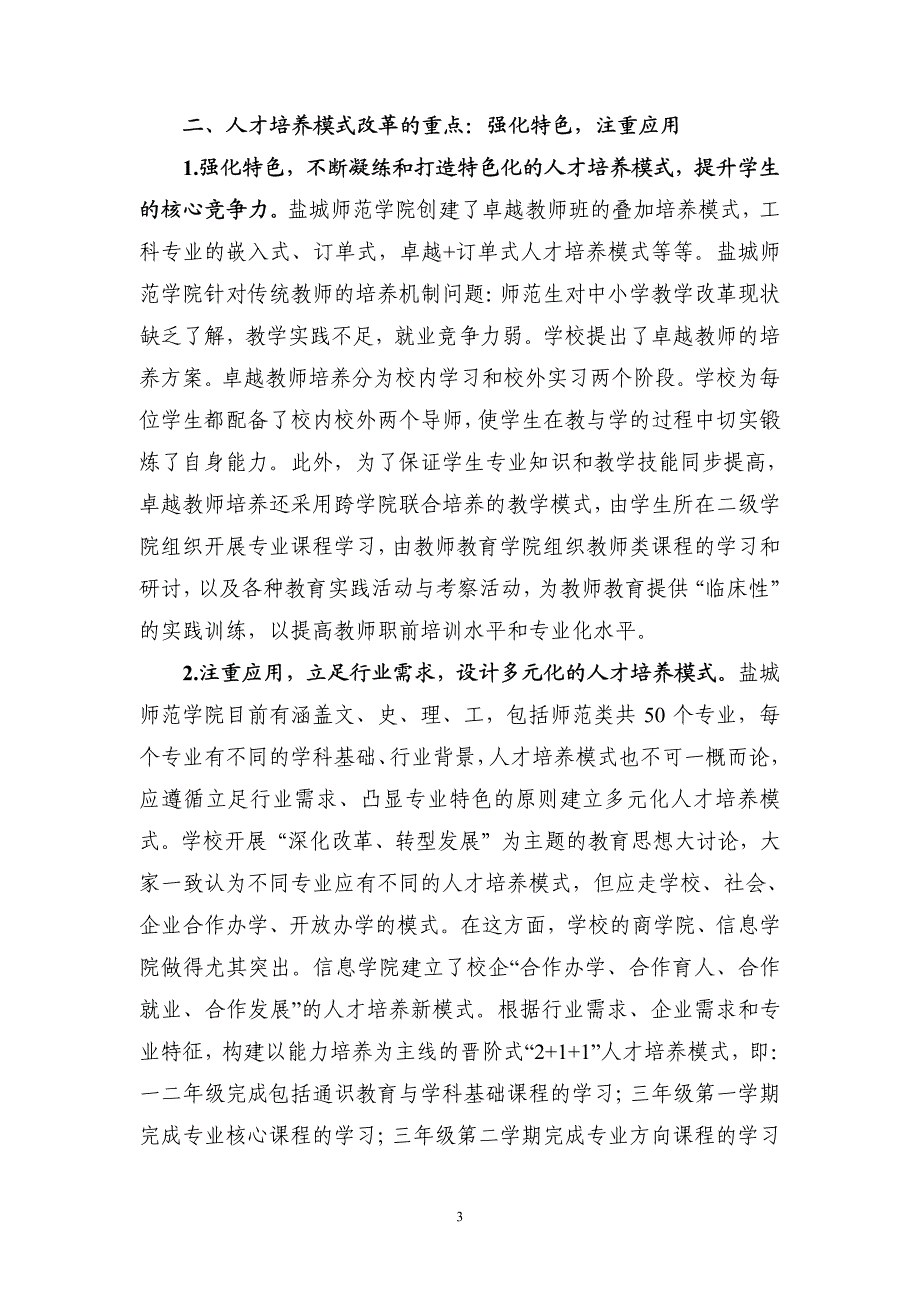 二、人才培养模式改革的重点：强化特色，注重应用
1.强化特色，不断凝练和打造特色化的人才培养模式，提升学生
的核心竞争力。盐城师范学院创建了卓越教师班的叠加培养模式，工
科专业的嵌入式、订单式，卓越+订单式人才培养模式等等。盐城师
范学院针对传统教师的培养机制问题：师范生对中小学教学改革现状
缺乏了解，教学实践不足，就业竞争力弱。学校提出了卓越教师的培
养方案。卓越教师培养分为校内学习和校外实习两个阶段。学校为每
位学生都配备了校内校外两个导师，使学生在教与学的过程中切实锻
炼了自身能力。此外，为了保证学生专业知识和教学技能同步提高，
卓越教师培养还采用跨学院联合培养的教学模式，由学生所在二级学
院组织开展专业课程学习，由教师教育学院组织教师类课程的学习和
研讨，以及各种教育实践活动与考察活动，为教师教育提供“临床性”
的实践训练，以提高教师职前培训水平和专业化水平。
2.注重应用，立足行业需求，设计多元化的人才培养模式。盐城
师范学院目前有涵盖文、史、理、工，包括师范类共 50 个专业，每
个专业有不同的学科基础、行业背景，人才培养模式也不可一概而论，
应遵循立足行业需求、凸显专业特色的原则建立多元化人才培养模
式。学校开展“深化改革、转型发展”为主题的教育思想大讨论，大
家一致认为不同专业应有不同的人才培养模式，但应走学校、社会、
企业合作办学、开放办学的模式。在这方面，学校的商学院、信息学
院做得尤其突出。信息学院建立了校企“合作办学、合作育人、合作
就业、合作发展”的人才培养新模式。根据行业需求、企业需求和专
业特征，构建以能力培养为主线的晋阶式“2+1+1”人才培养模式，即：
一二年级完成包括通识教育与学科基础课程的学习；三年级第一学期
完成专业核心课程的学习；三年级第二学期完成专业方向课程的学习
3